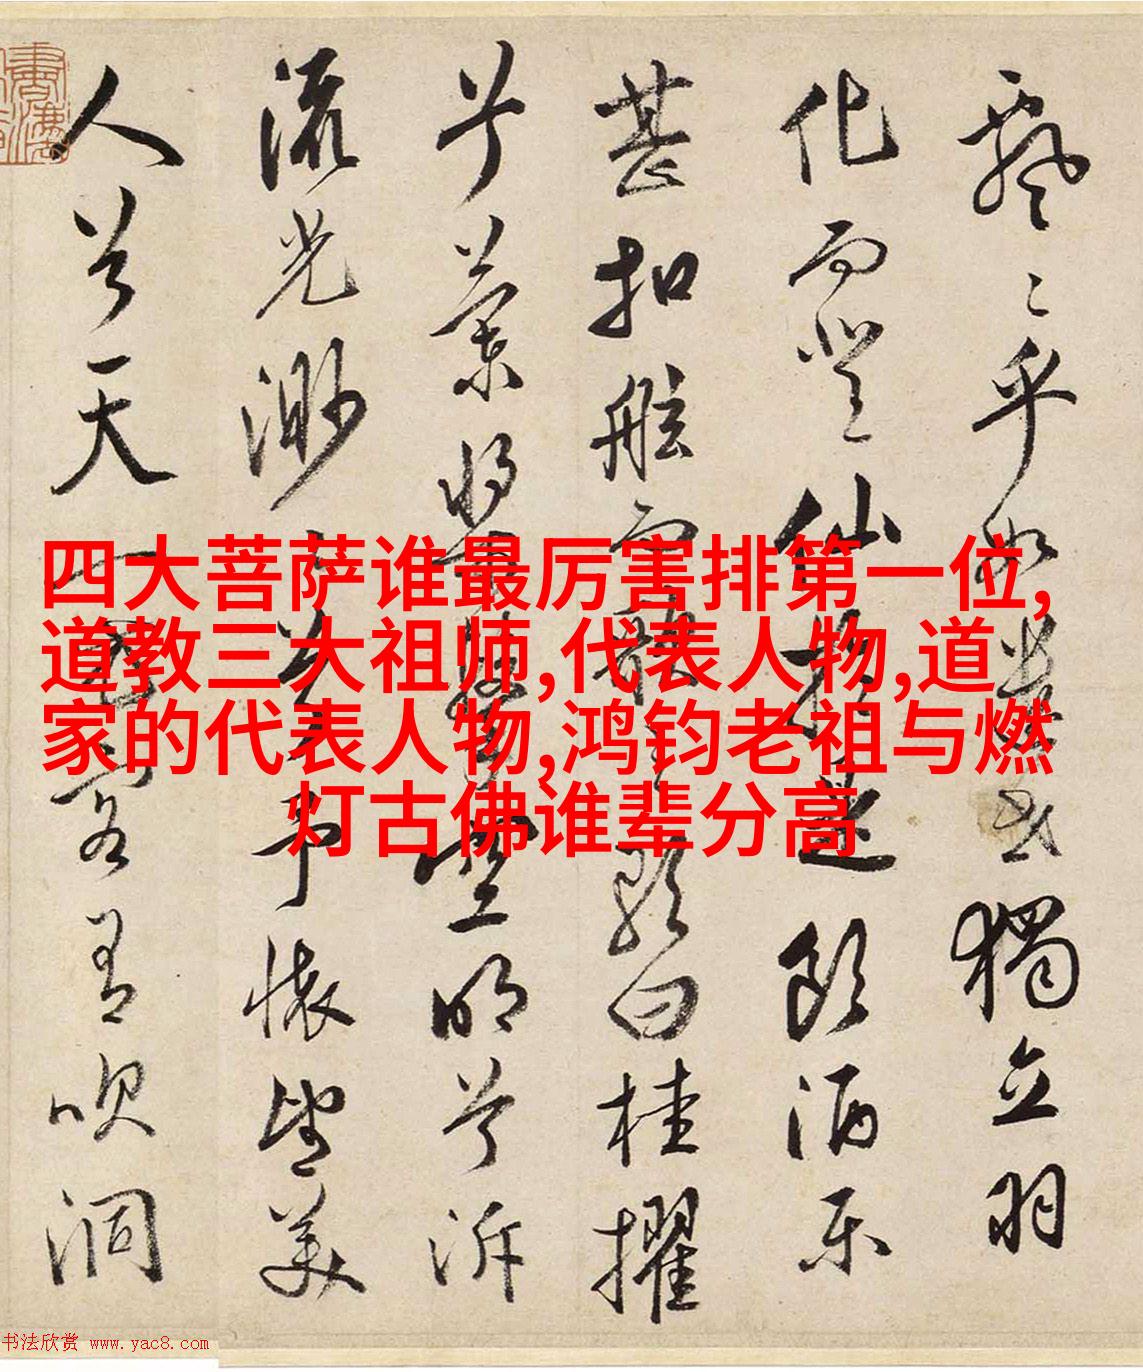 飘〻乎如遺世獨立羽
化而登仙於是飲酒樂
甚扣舷而歌之歌曰桂擢
兮蘭槳擊空明兮泝
流光渺〻兮予懷望美
人兮天一方客有吹洞
四大菩萨谁最厉害排第一位,
道教三大祖师,代表人物,道
家的代表人物,鸿钧老祖与燃
灯古佛谁辈分高
书法欣赏 www.yac8.com